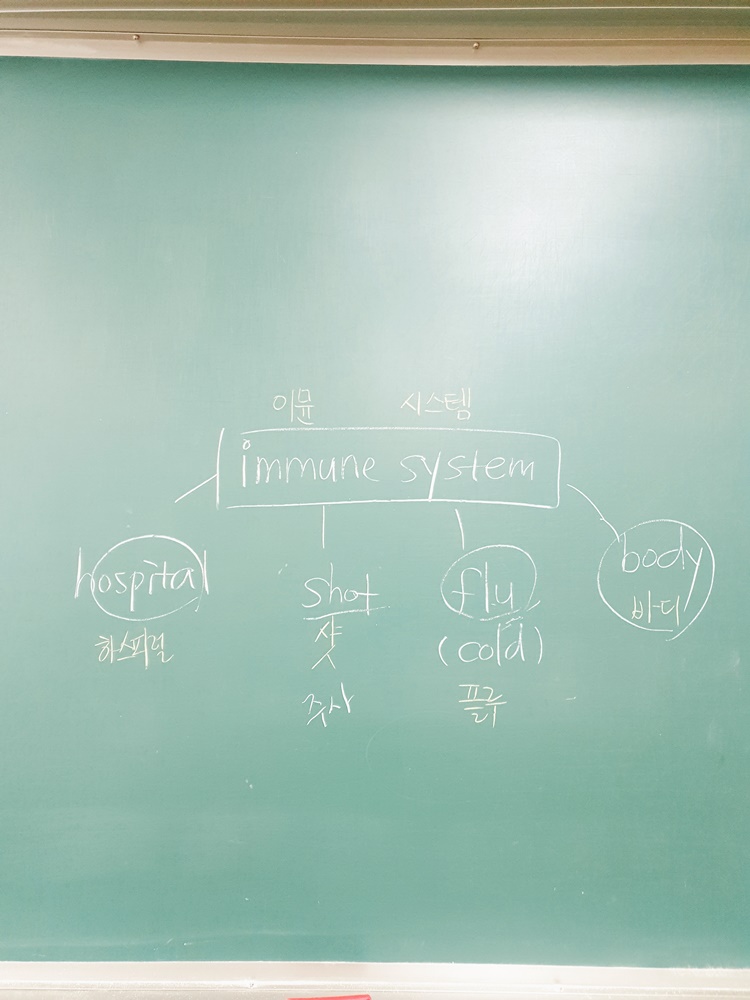 이뮨 시스템
immune system
hospital
하스피럴
shot
샷
주사
flu
(cold)
플루
body
바디